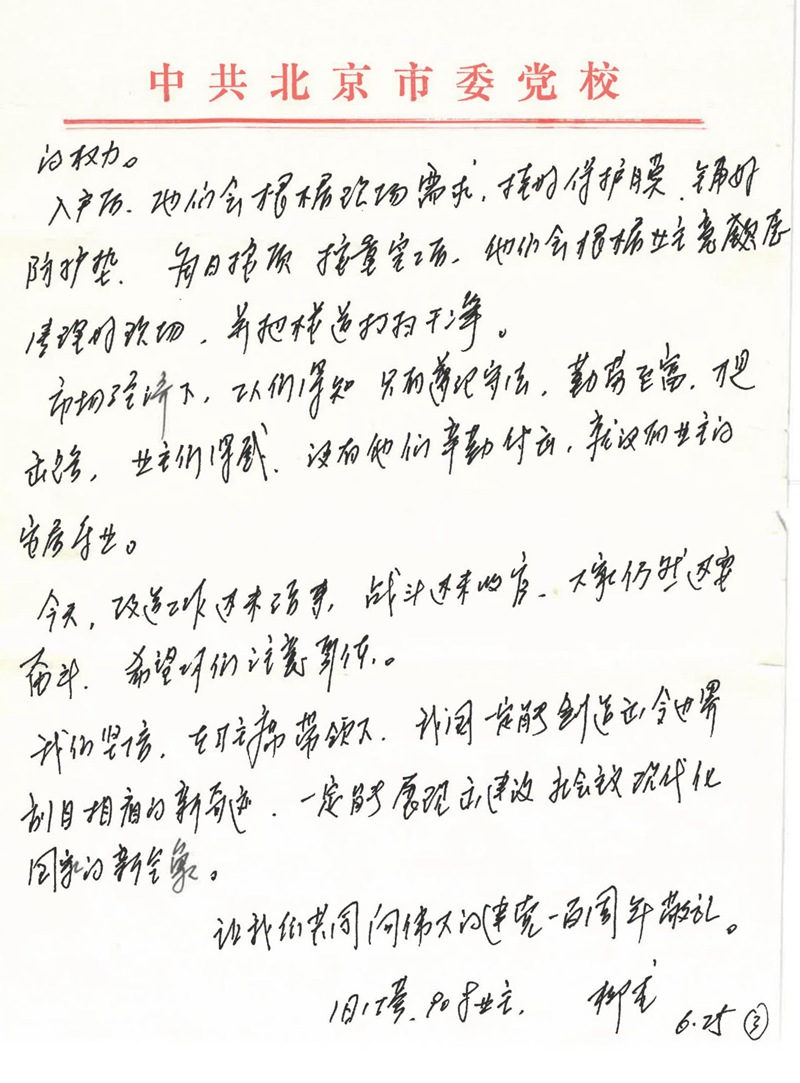 中共北京市委党校
的权力。
入户后、他们会根据现场需求，挂好保护膜、铺好
防护垫、每日按项 按量完工后、他们会根据业主意愿
清理好现场，并把楼道打扫干净。
市场经济下，工人们深知 只有遵纪守法，勤劳致富，才是
出路，业主们深感、没有他们辛勤付出，就没有业主的
安居乐业。
今天，改造工作还未结束，战斗还未收官、大家仍然还要
奋斗、希望师傅们注意身体。
我们坚信，在习主席带领下、我国一定能创造出令世界
刮目相看的新奇迹、一定能展现出建设社会主义现代化
国家的新气象。
让我们共同向伟大的建党一百周年敬礼。
业主、
6.25 ③